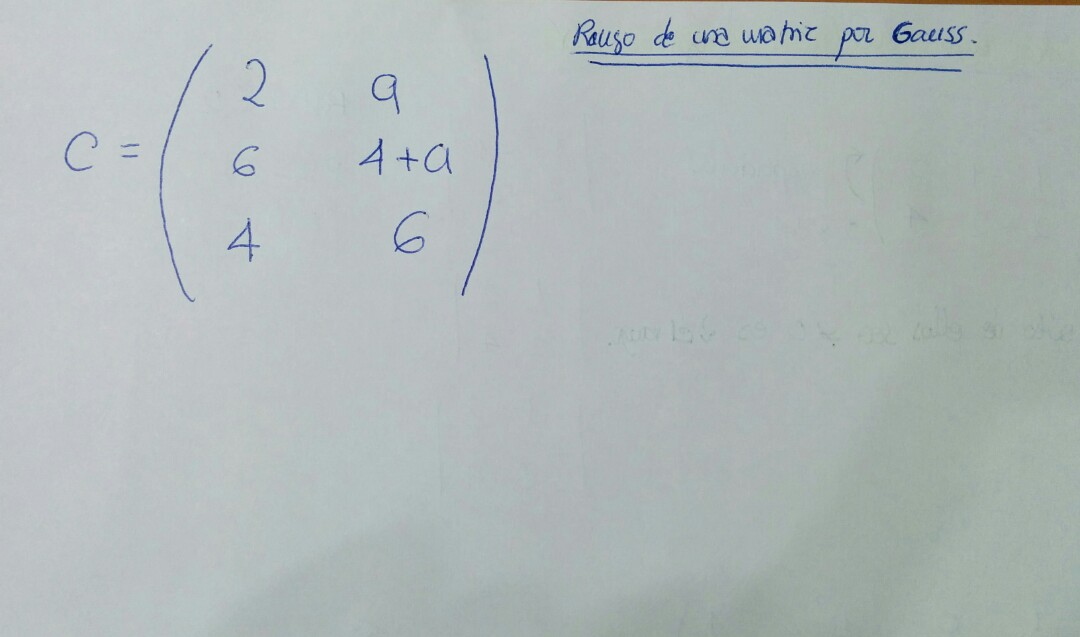 Rango de una matriz por Gauss.
2 a
C = 6 4+a
4 6